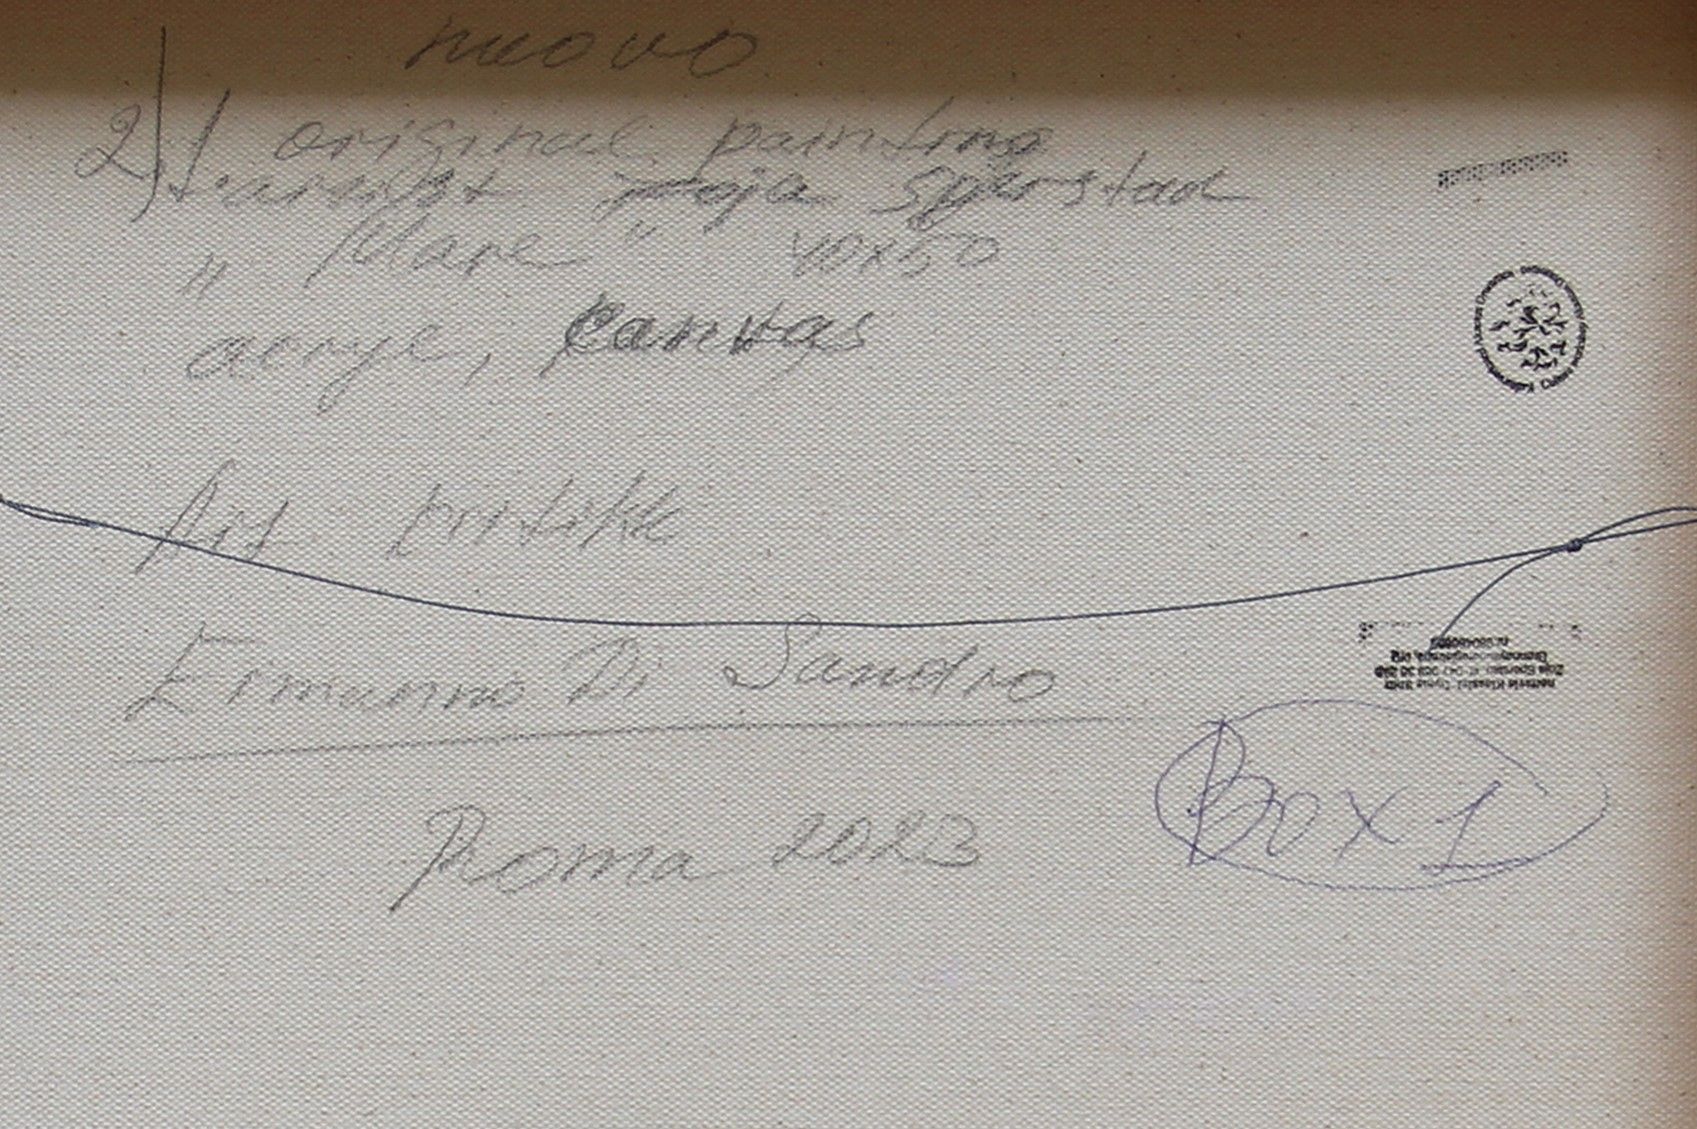 nuovo
2) 1 original painting
Zoja Sperstad
"Mare" 40x50
acryl, canvas
Art kritikk
Ermanno Di Sandro
Roma 2023
Box 1